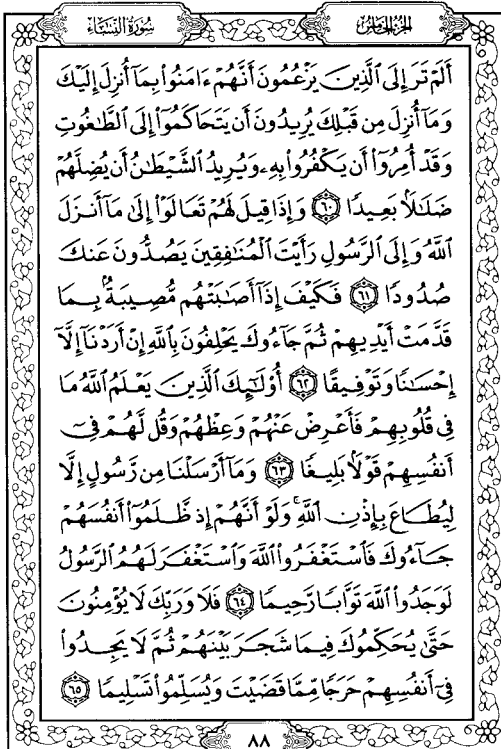 سُورَةُ النِّسَاءِ
الجزء الخامس
أَلَمْ تَرَ إِلَى ٱلَّذِينَ يَزْعُمُونَ أَنَّهُمْ ءَامَنُوا۟ بِمَآ أُنزِلَ إِلَيْكَ
وَمَآ أُنزِلَ مِن قَبْلِكَ يُرِيدُونَ أَن يَتَحَاكَمُوٓا۟ إِلَى ٱلطَّٰغُوتِ
وَقَدْ أُمِرُوٓا۟ أَن يَكْفُرُوا۟ بِهِۦ وَيُرِيدُ ٱلشَّيْطَٰنُ أَن يُضِلَّهُمْ
ضَلَٰلًۢا بَعِيدًا ٦٠ وَإِذَا قِيلَ لَهُمْ تَعَالَوْا۟ إِلَىٰ مَآ أَنزَلَ
ٱللَّهُ وَإِلَى ٱلرَّسُولِ رَأَيْتَ ٱلْمُنَٰفِقِينَ يَصُدُّونَ عَنكَ
صُدُودًا ٦١ فَكَيْفَ إِذَآ أَصَٰبَتْهُم مُّصِيبَةٌۢ بِمَا
قَدَّمَتْ أَيْدِيهِمْ ثُمَّ جَآءُوكَ يَحْلِفُونَ بِٱللَّهِ إِنْ أَرَدْنَآ إِلَّآ
إِحْسَٰنًا وَتَوْفِيقًا ٦٢ أُو۟لَٰٓئِكَ ٱلَّذِينَ يَعْلَمُ ٱللَّهُ مَا
فِى قُلُوبِهِمْ فَأَعْرِضْ عَنْهُمْ وَعِظْهُمْ وَقُل لَّهُمْ فِىٓ
أَنفُسِهِمْ قَوْلًۢا بَلِيغًا ٦٣ وَمَآ أَرْسَلْنَا مِن رَّسُولٍ إِلَّا
لِيُطَاعَ بِإِذْنِ ٱللَّهِ ۚ وَلَوْ أَنَّهُمْ إِذ ظَّلَمُوٓا۟ أَنفُسَهُمْ
جَآءُوكَ فَٱسْتَغْفَرُوا۟ ٱللَّهَ وَٱسْتَغْفَرَ لَهُمُ ٱلرَّسُولُ
لَوَجَدُوا۟ ٱللَّهَ تَوَّابًا رَّحِيمًا ٦٤ فَلَا وَرَبِّكَ لَا يُؤْمِنُونَ
حَتَّىٰ يُحَكِّمُوكَ فِيمَا شَجَرَ بَيْنَهُمْ ثُمَّ لَا يَجِدُوا۟
فِىٓ أَنفُسِهِمْ حَرَجًا مِّمَّا قَضَيْتَ وَيُسَلِّمُوا۟ تَسْلِيمًا ٦٥
٨٨